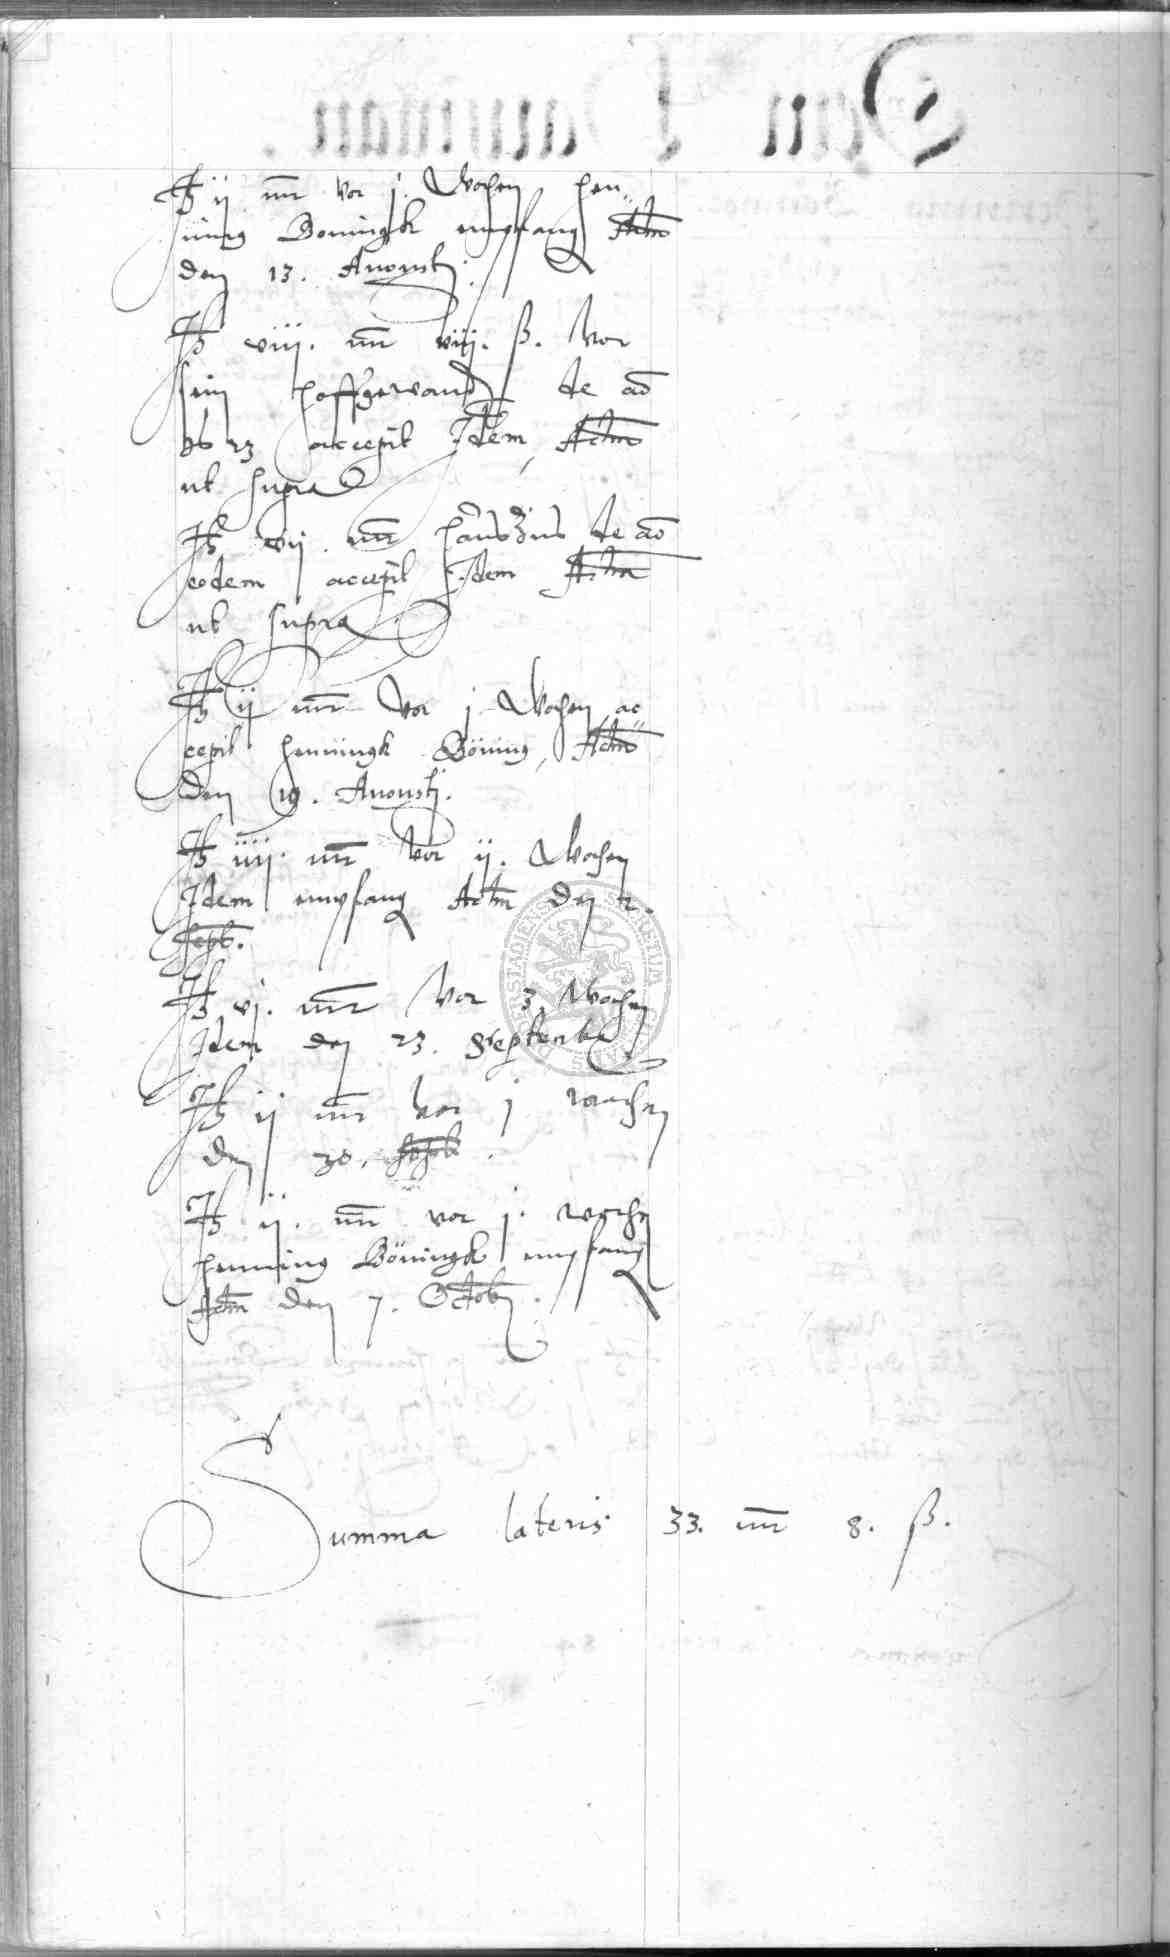 It ij mr vor j. Wochen hen¬
ning Boningk empfang Actm
den 13. Augusti.
It viij. mr viij. ß. vor
sein hoffgewandt de aō
accepit Idem, Actm
ut supra
It vij mr haus Zins de aō
eodem accepit Idem Actm
ut supra
It ij mr vor j Wochen ac¬
cepit henningk Böning, Actm
den 19. Augusti.
It iiij. mr vor ij. Wochen
Idem empfang Actm den 2.
Sept.
It vj. mr vor 3 Wochen
Idem den 23. Septemb
It ij mr vor j wochen
den 30.
It ij. mr vor j. wochen
henning Böningk empfang
Actm den 7. Octob.
Summa lateris 33. mr 8. ß.